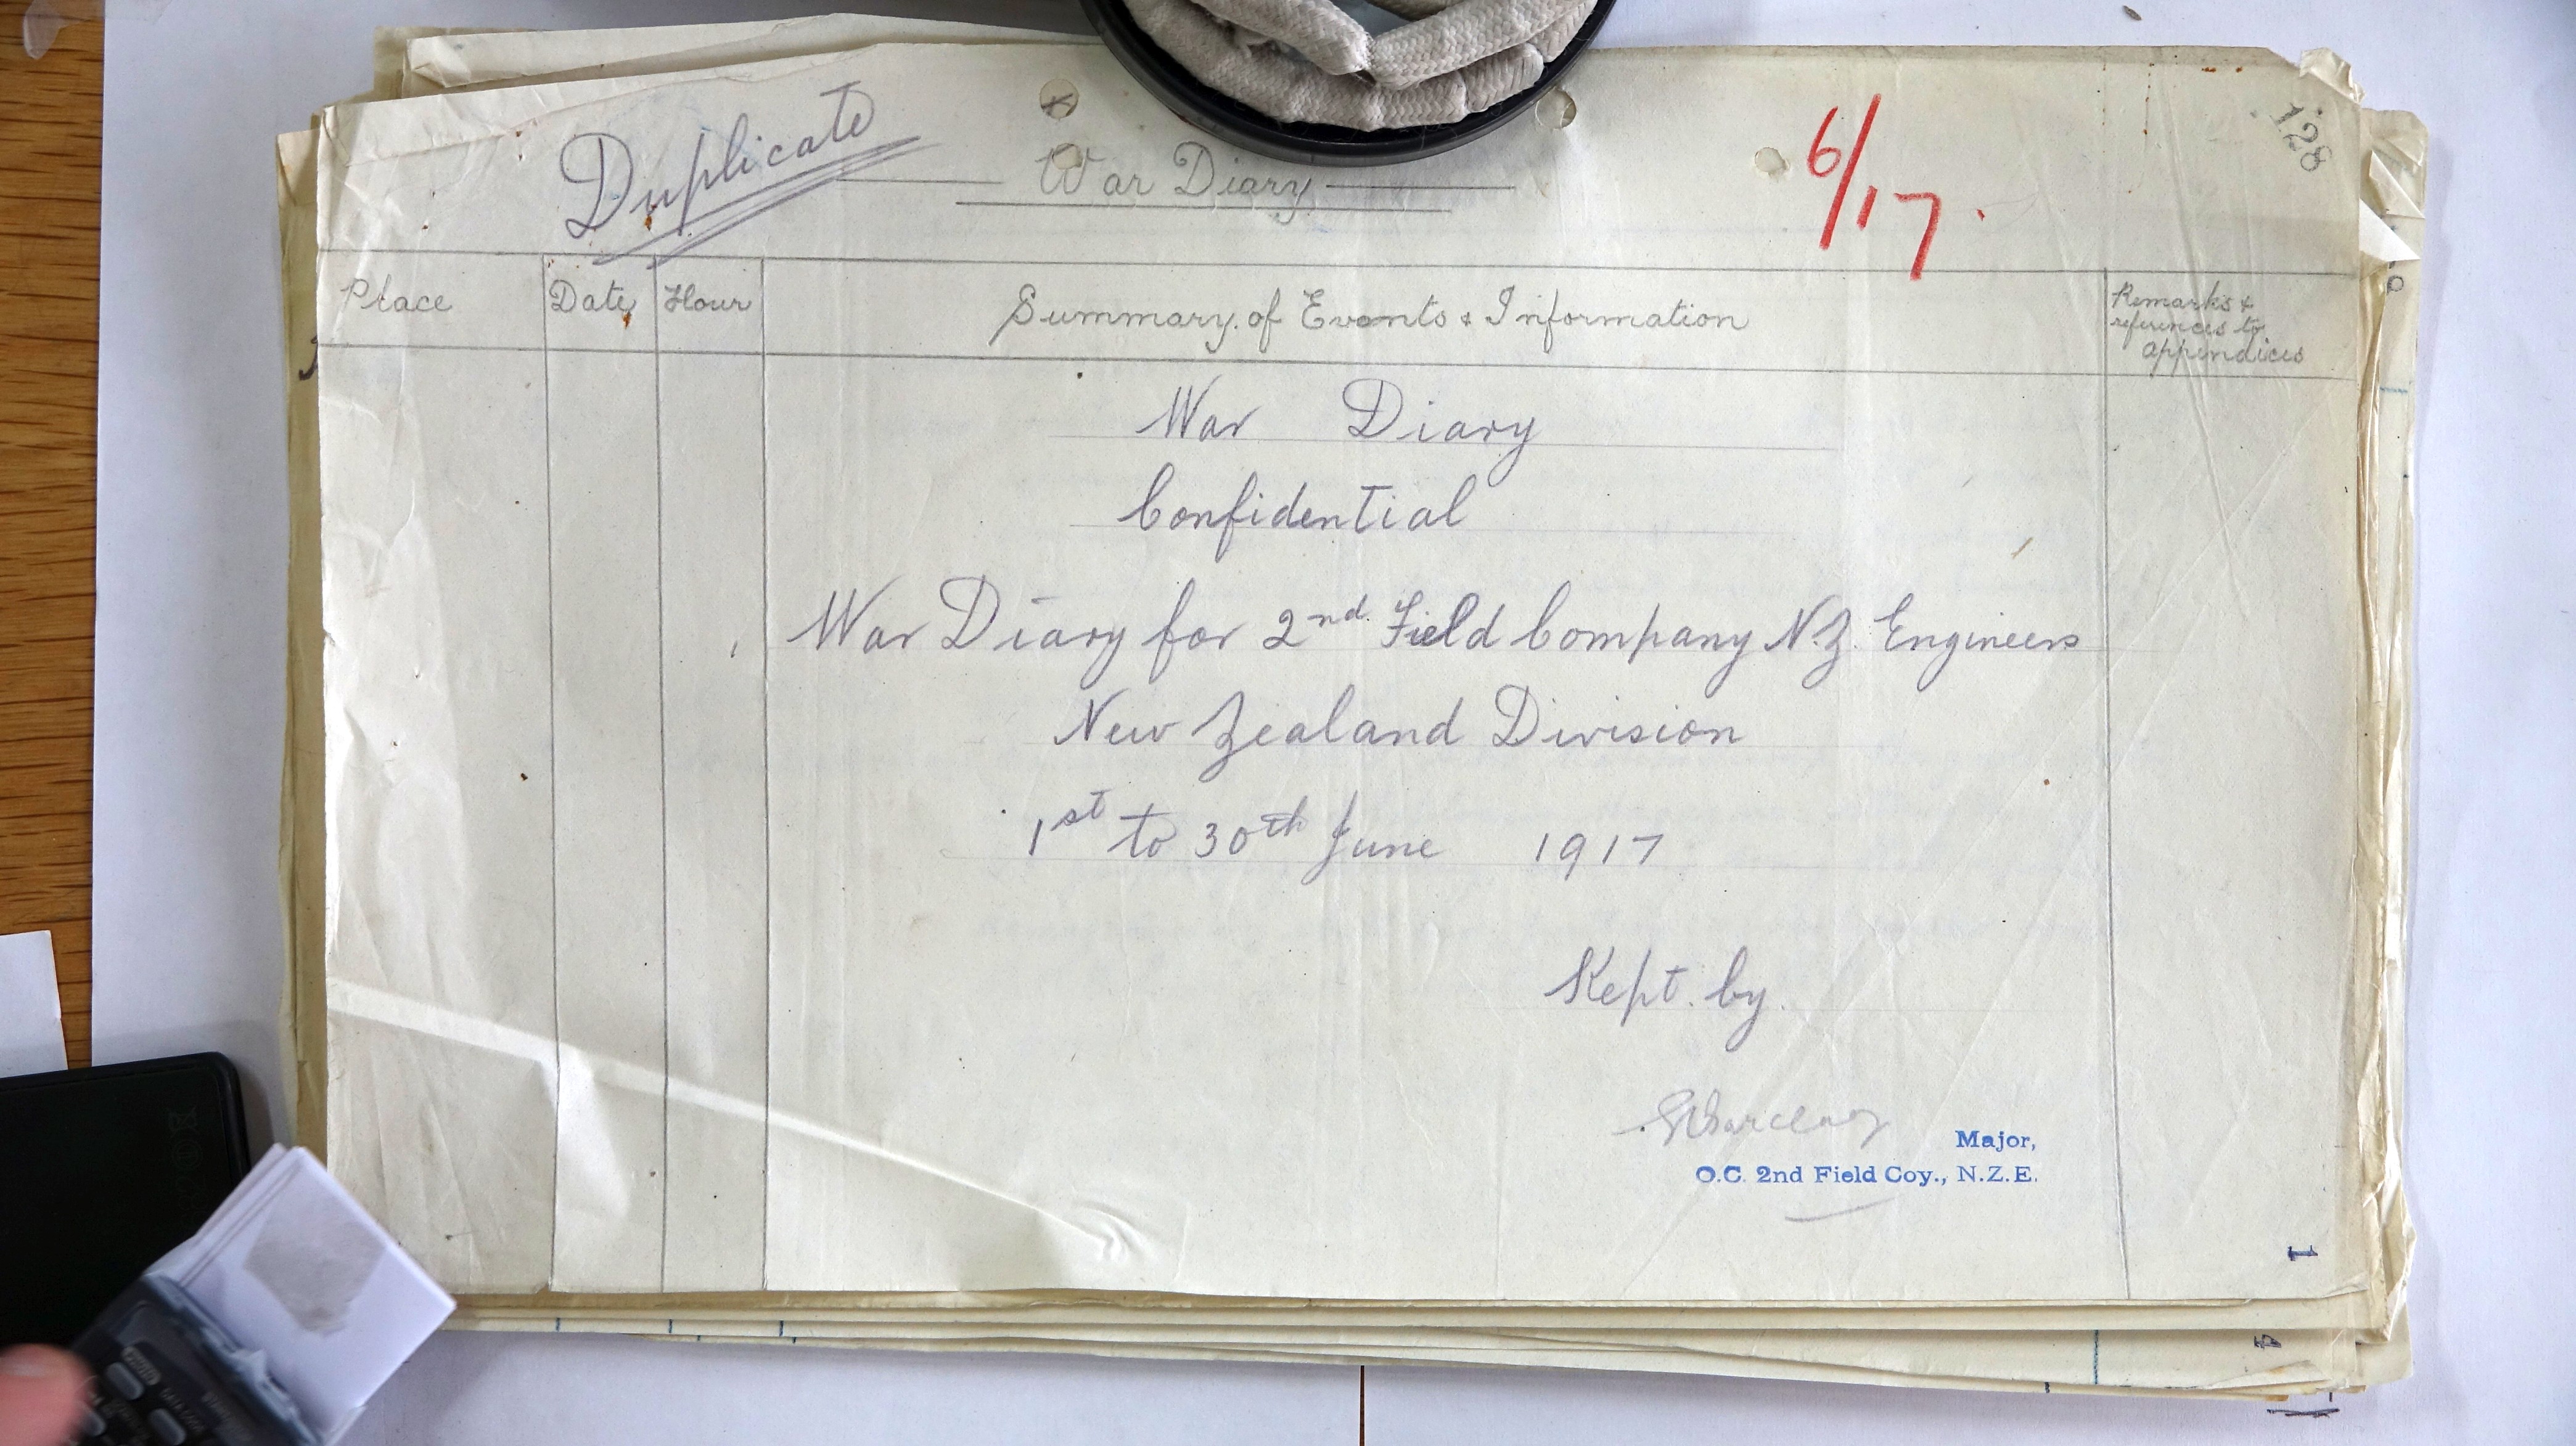 Duplicate
War Diary
6/17.
128
Place
Date
Hour
Summary of Events & Information
Remarks &
references to
appendices
War Diary
Confidential
War Diary for 2nd. Field Company N.Z. Engineers
New Zealand Division
1st to 30th June 1917
Kept. by.
Barclay
Major,
O.C. 2nd Field Coy., N.Z.E.
1
4